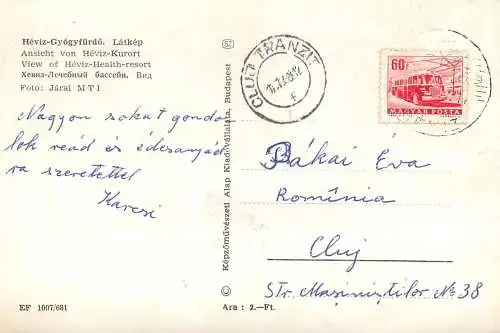 Hévíz-Gyógyfürdő. Látkép
Ansicht von Héviz-Kurort
View of Héviz-Health-resort
Хевиз-Лечебный бассейн. Вид
Foto: Járai M T I
Nagyon sokat gondo
lok reád és édesanyád
ra szeretettel
Karcsi
EF 1007/681
Képzőművészeti Alap Kiadóvállalata, Budapest
Ara : 2.—Ft.
CLUJ TRANZIT
F
60f
MAGYAR POSTA
Bákai Éva
Romînia
Cluj
Str. Masiniștilor No 38